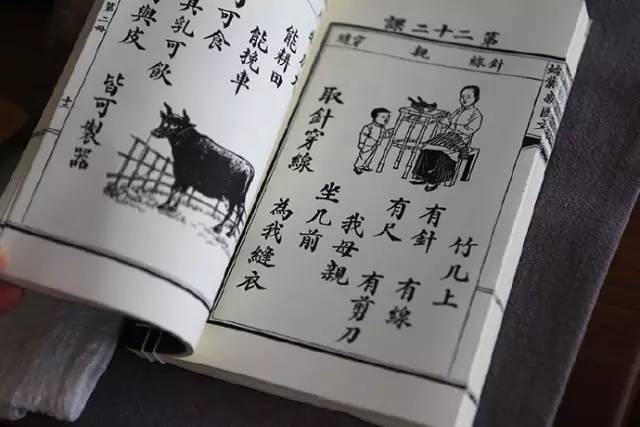 第二十二課
針線 親 穿縫
竹几上
有針 有線
有尺 有剪刀
我母親
坐几前
取針穿線
為我縫衣
能耕田
能挽車
可食
其乳可飲
與皮
皆可製器
第二冊
十一